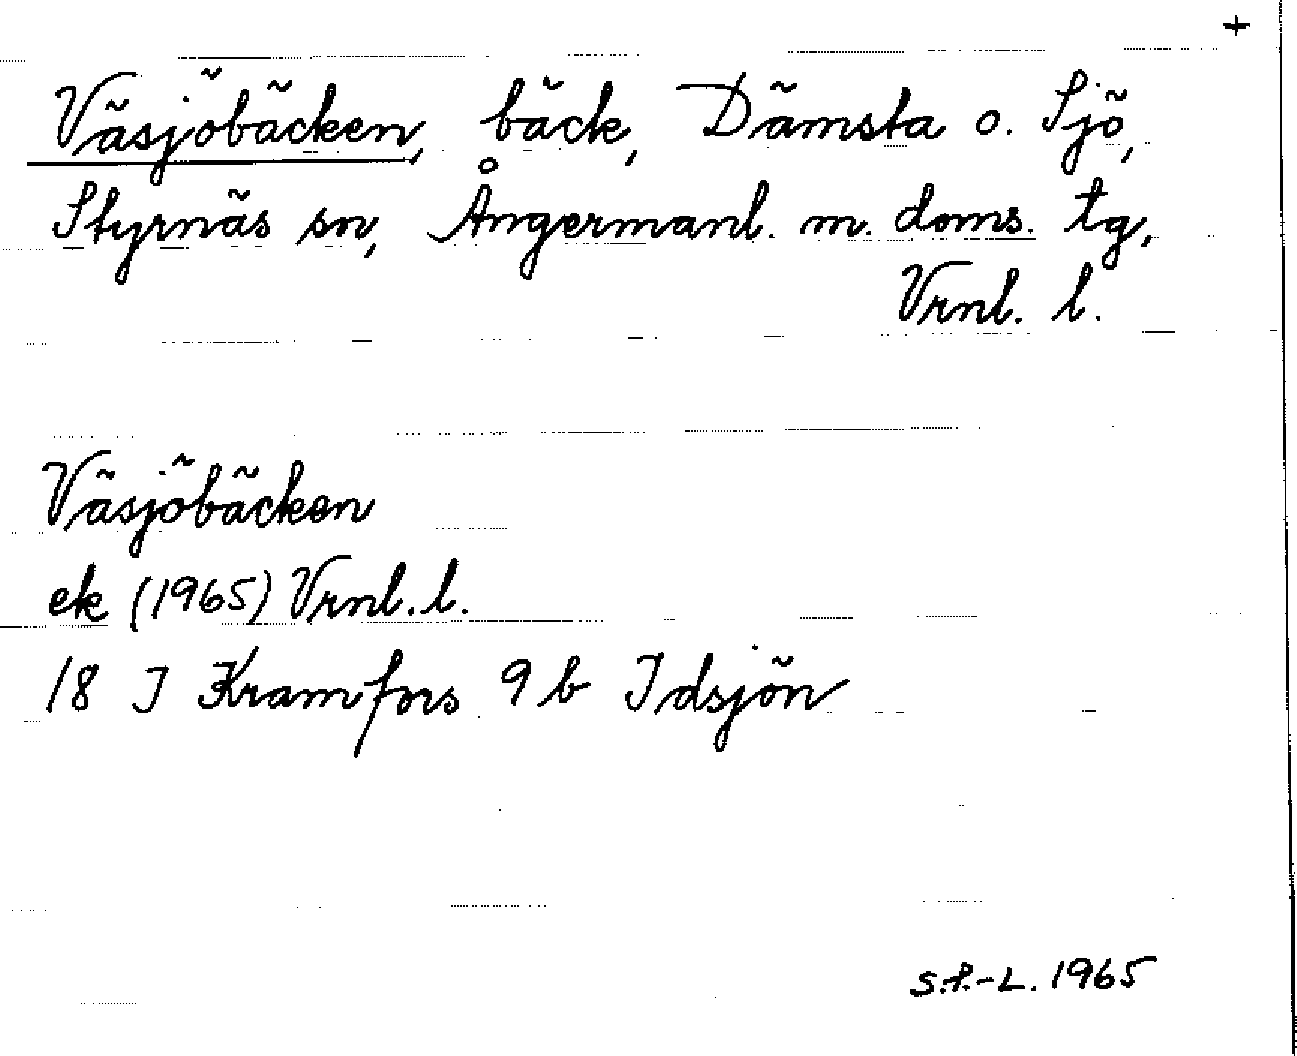 +
Väsjöbäcken, bäck, Dämsta o. Sjö,
Styrnäs sn, Ångermanl. m. doms. tg,
Vrnl. l.
Väsjöbäcken
ek (1965) Vrnl. l.
18 I Kramfors 9 b Idsjön
S.f.-L. 1965